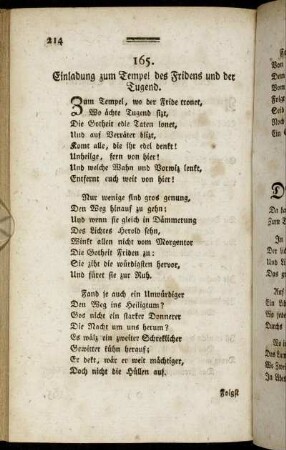 214
165.
Einladung zum Tempel des Fridens und der
Tugend.
Zum Tempel, wo der Fride tronet,
Wo ächte Tugend sizt,
Die Gotheit edle Taten lonet,
Und auf Verräter blizt,
Komt alle, die ihr edel denkt!
Unheilge, fern von hier!
Und welche Wahn und Vorwiz lenkt,
Entfernt euch weit von hier!
Nur wenige sind gros genung,
Den Weg hinauf zu gehn:
Und wenn sie gleich in Dämmerung
Des Lichtes Herold sehn,
Winkt allen nicht vom Morgentor
Die Gotheit Friden zu:
Sie ziht die würdigsten hervor,
Und füret sie zur Ruh.
Fand je auch ein Unwürdiger
Den Weg ins Heiligtum?
Gos nicht ein starker Donnerer
Die Nacht um uns herum?
Es wälz ein zweiter Schreklicher
Gewitter kühn herauf;
Er dekt, wär er weit mächtiger,
Doch nicht die Hüllen auf.
Folgst